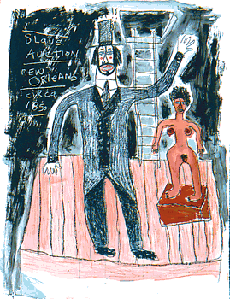 SLAVE
AUCTION
NEW
ORLEANS
CIRCA